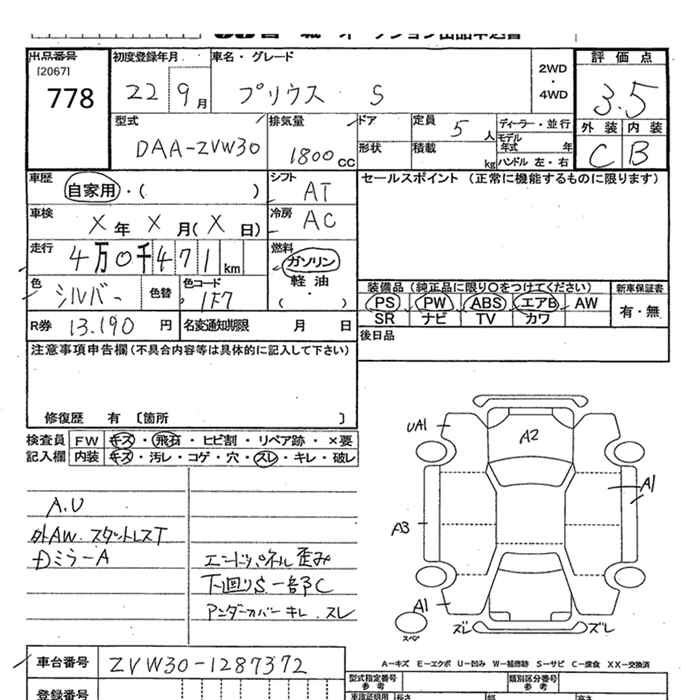 出品番号 [2067] 778
初度登録年月 22 9月
車名・グレード プリウス S
2WD・4WD
評価点 3.5
外装 内装
C B
型式 DAA-ZVW30
排気量 1800cc
ドア 形状
定員 5人
積載 kg
ディーラー・並行
モデル年式 年
ハンドル 左・右
車歴 自家用・( )
シフト AT
車検 X年X月(X日)
冷房 AC
走行 4万0千471km
燃料 ガソリン
軽油
・( )
色 シルバー 色替
色コード 1F7
R券 13.190円
名変通知期限 月 日
セールスポイント (正常に機能するものに限ります)
装備品 (純正品に限り○をつけてください)
新車保証書
PS PW ABS エアB AW
有・無
SR ナビ TV カワ
後日品
注意事項申告欄(不具合内容等は具体的に記入して下さい)
修復歴 有 〔箇所 〕
検査員記入欄
FW キズ・飛石・ヒビ割・リペア跡・×要
内装 キズ・汚レ・コゲ・穴・スレ・キレ・破レ
A.U
外AW.スタットレスT
Dミラ-A
エンドパネル歪み
下廻りS一部C
アンダーカバーキレ.スレ
UA1
A2
A1
A3
A1
スペア
ズレ
ズレ
A-キズ E-エクボ U-凹み W-補修跡 S-サビ C-腐食 XX-交換済
車台番号 ZVW30-1287372
登録番号
型式指定番号
参考
類別区分番号
参考
車検証明用
長さ
幅
高さ